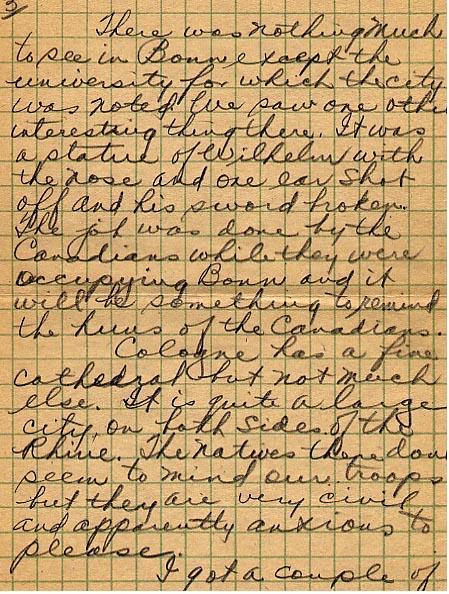 3/
There was nothing much
to see in Bonn except the
university for which the city
was noted. We saw one other
interesting thing there. It was
a statue of Wilhelm with
the nose and one ear shot
off and his sword broken.
The job was done by the
Canadians while they were
occupying Bonn and it
will be something to remind
the huns of the Canadians.
Cologne has a fine
cathedral but not much
else. It is quite a large
city, on both sides of the
Rhine. The natives there dont
seem to mind our troops
but they are very civil
and apparently anxious to
please.
I got a couple of